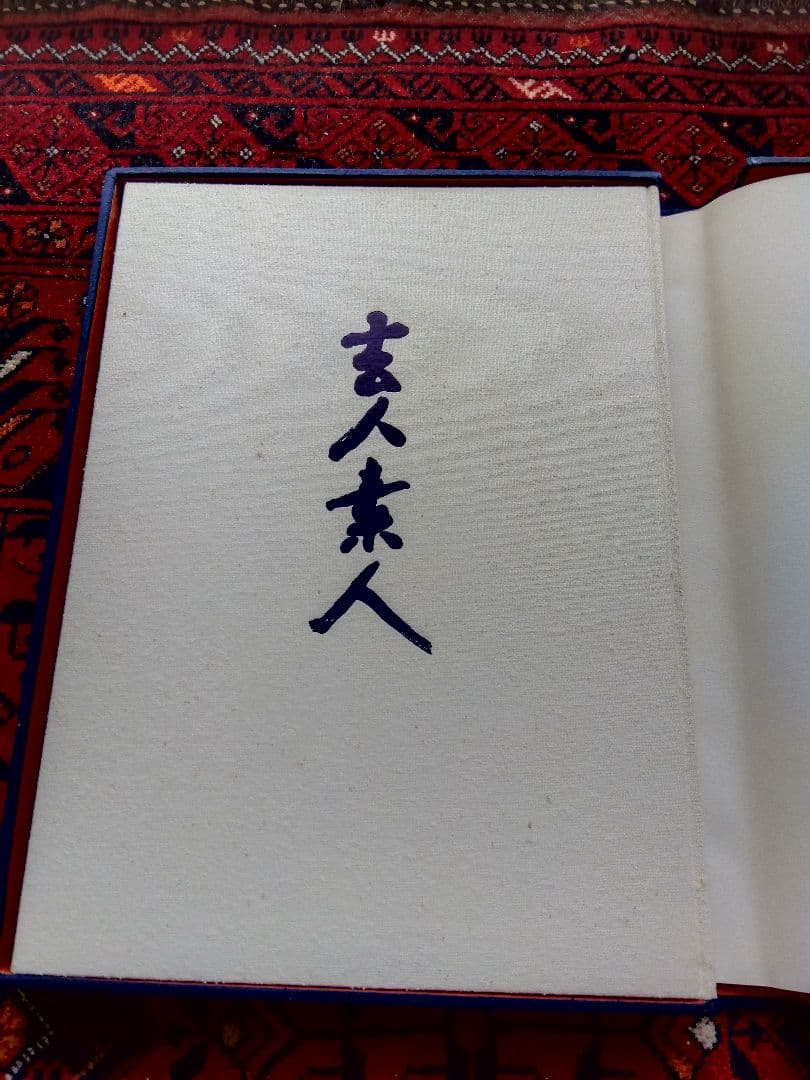 玄人素人